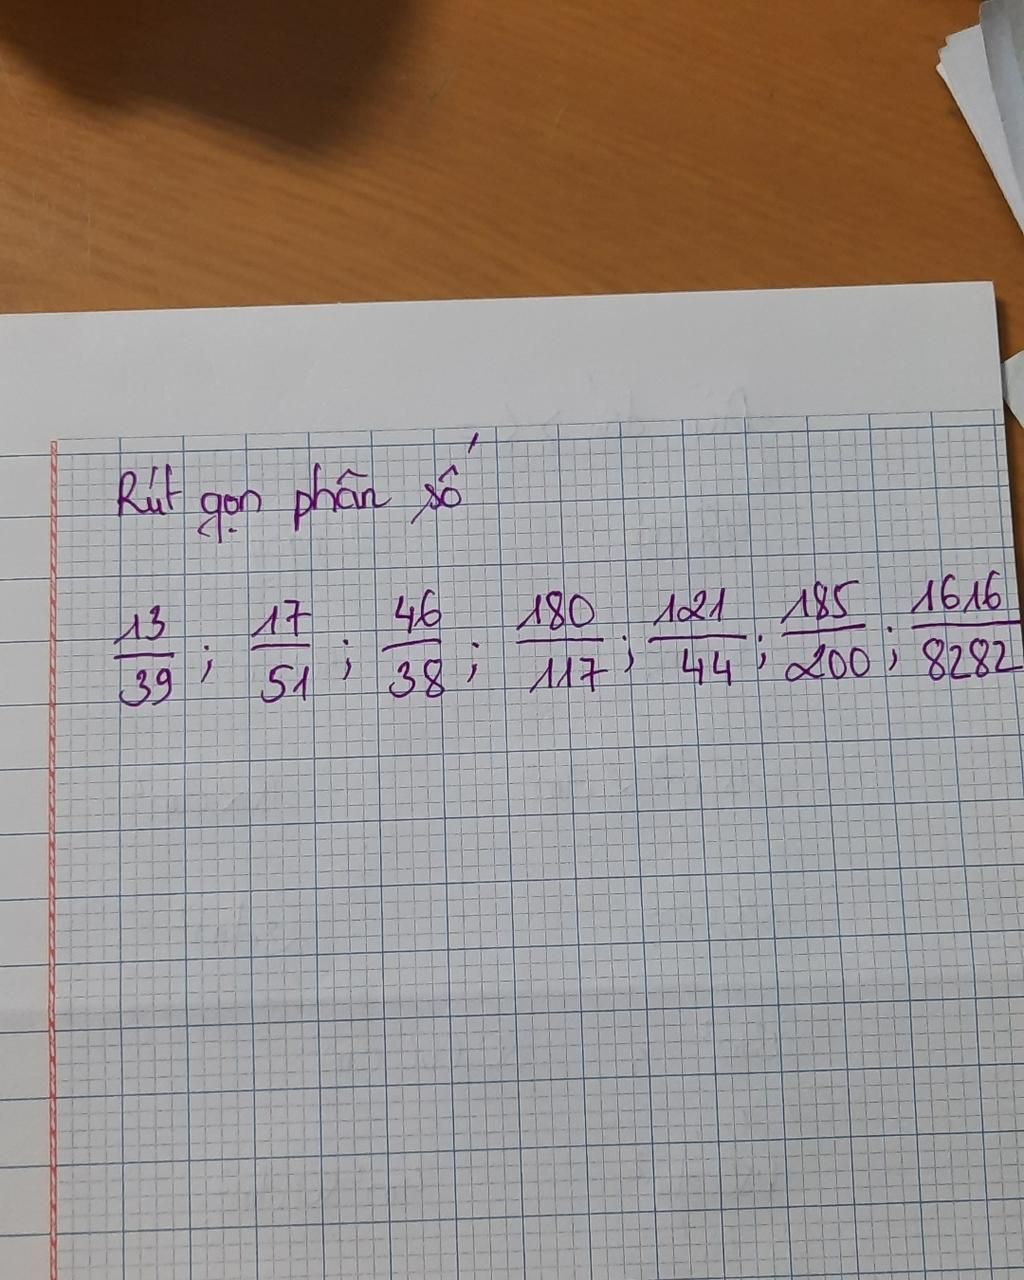 Rút gọn phân số
13/39 ; 17/51 ; 46/38 ; 180/117 ; 121/44 ; 185/200 ; 1616/8282